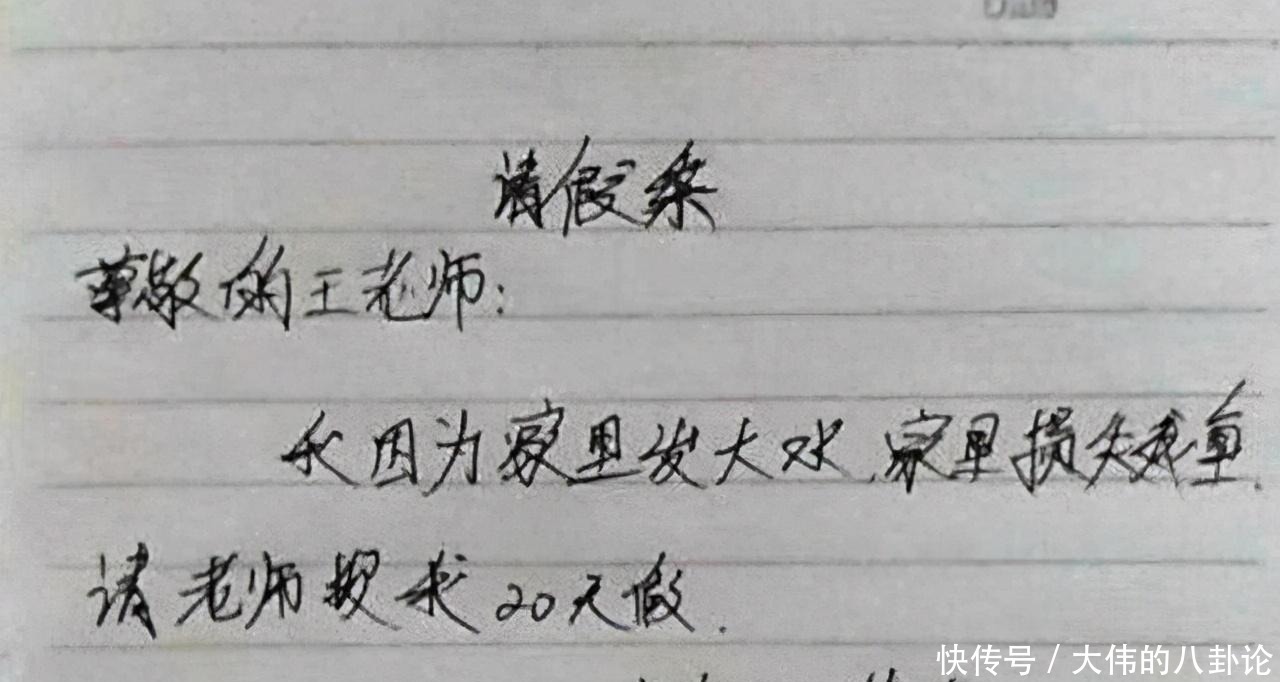 请假条
尊敬的王老师:
我因为家里发大水,家里损失惨重.
请老师 我20天假.
快传号/大伟的八卦论